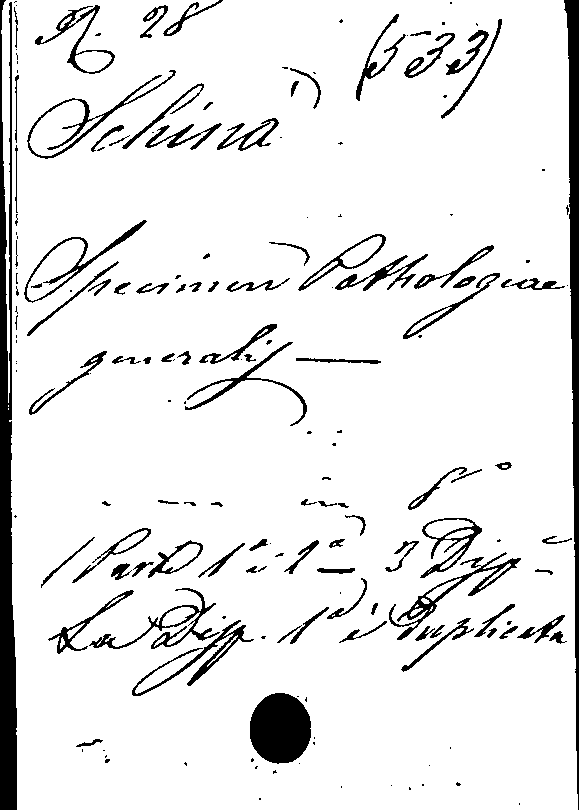 N. 28
(533)
Schinà
Specimen Pathologiae
generalis —
in 8°
Parte 1ª e 2ª 3 Disp.
La Disp. 1ª è Duplicata